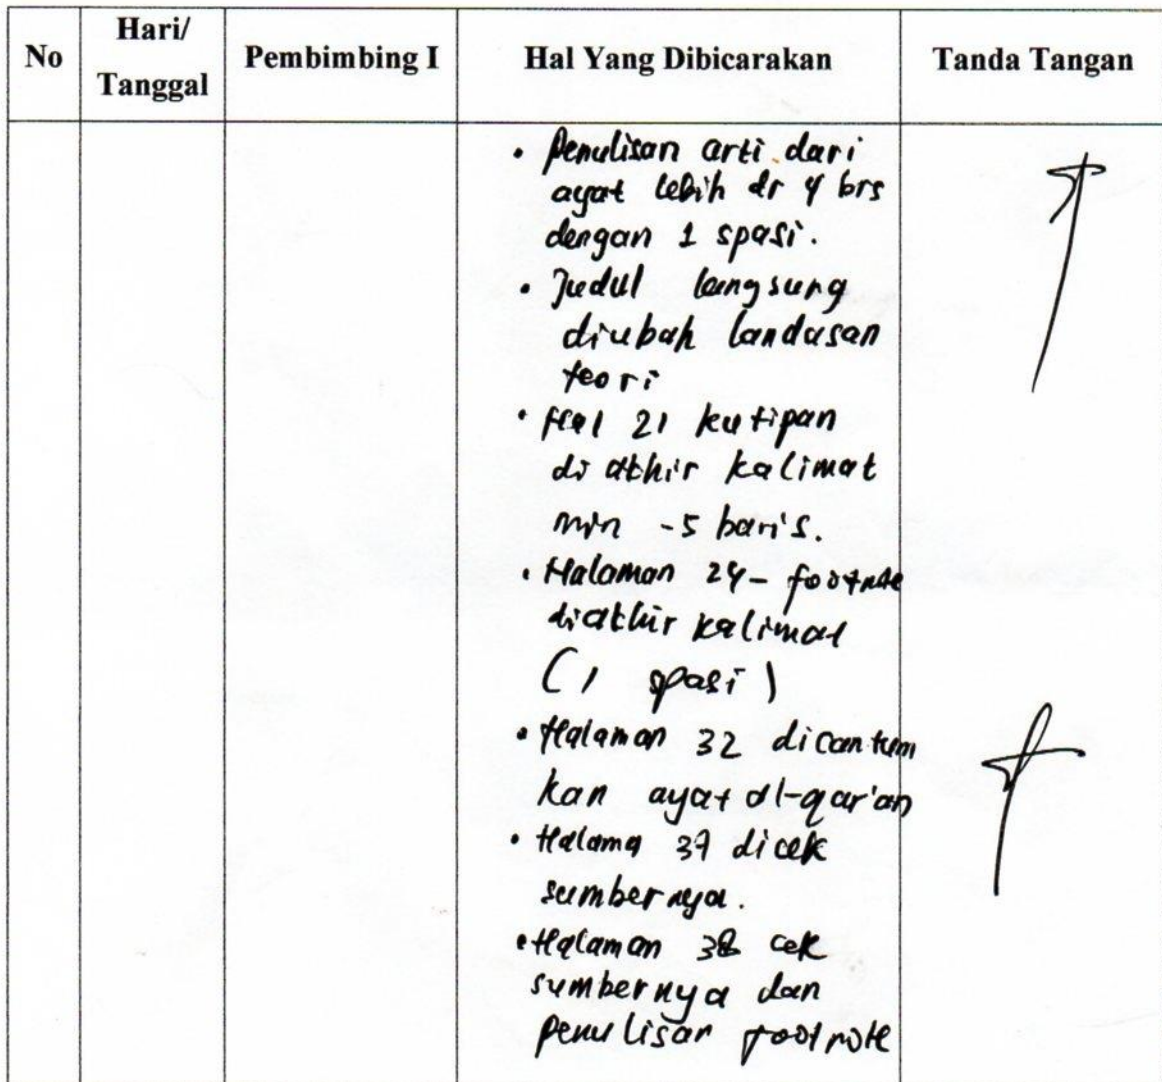 No
Hari/
Tanggal
Pembimbing I
Hal Yang Dibicarakan
Tanda Tangan
• Penulisan arti dari
ayat lebih dr 4 brs
dengan 1 spasi.
• Judul langsung
diubah landasan
teori
• Hal 21 kutipan
di akhir kalimat
min -5 baris.
• Halaman 24- footnote
diakhir kalimat
(1 spasi)
• Halaman 32 dicantum
kan ayat al-qur'an
• Halama 37 dicek
sumbernya.
• Halaman 38 cek
sumbernya dan
penulisan footnote